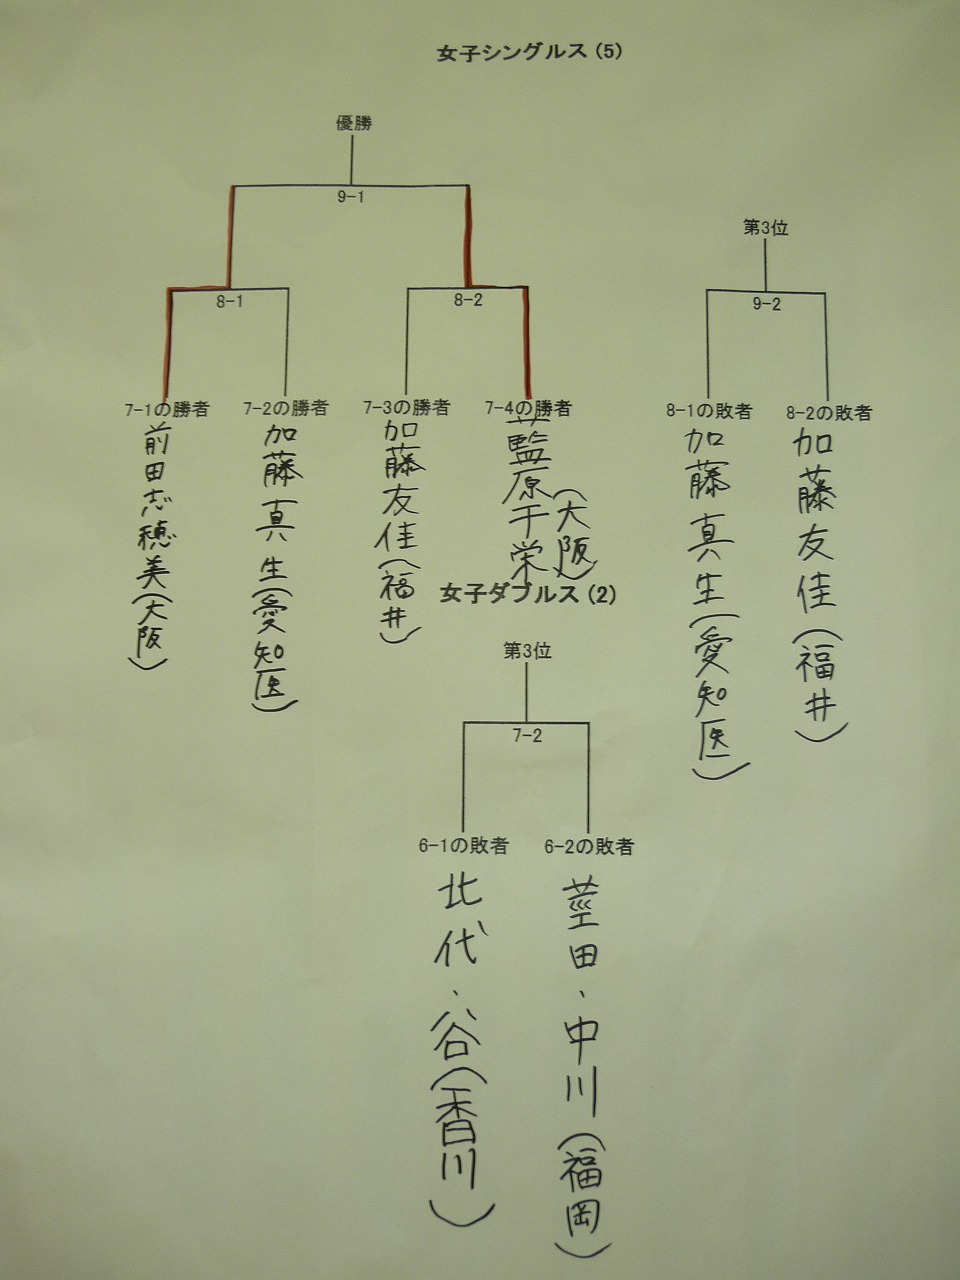 女子シングルス(5)
優勝
9-1
第3位
8-1
8-2
9-2
7-1の勝者
7-2の勝者
7-3の勝者
7-4の勝者
8-1の敗者
8-2の敗者
前田志穂美(大阪)
加藤真生(愛知医)
加藤友佳(福井)
藍原千栄(大阪)
加藤真生(愛知医)
加藤友佳(福井)
女子ダブルス(2)
第3位
7-2
6-1の敗者
6-2の敗者
北代、谷(香川)
茎田、中川(福岡)